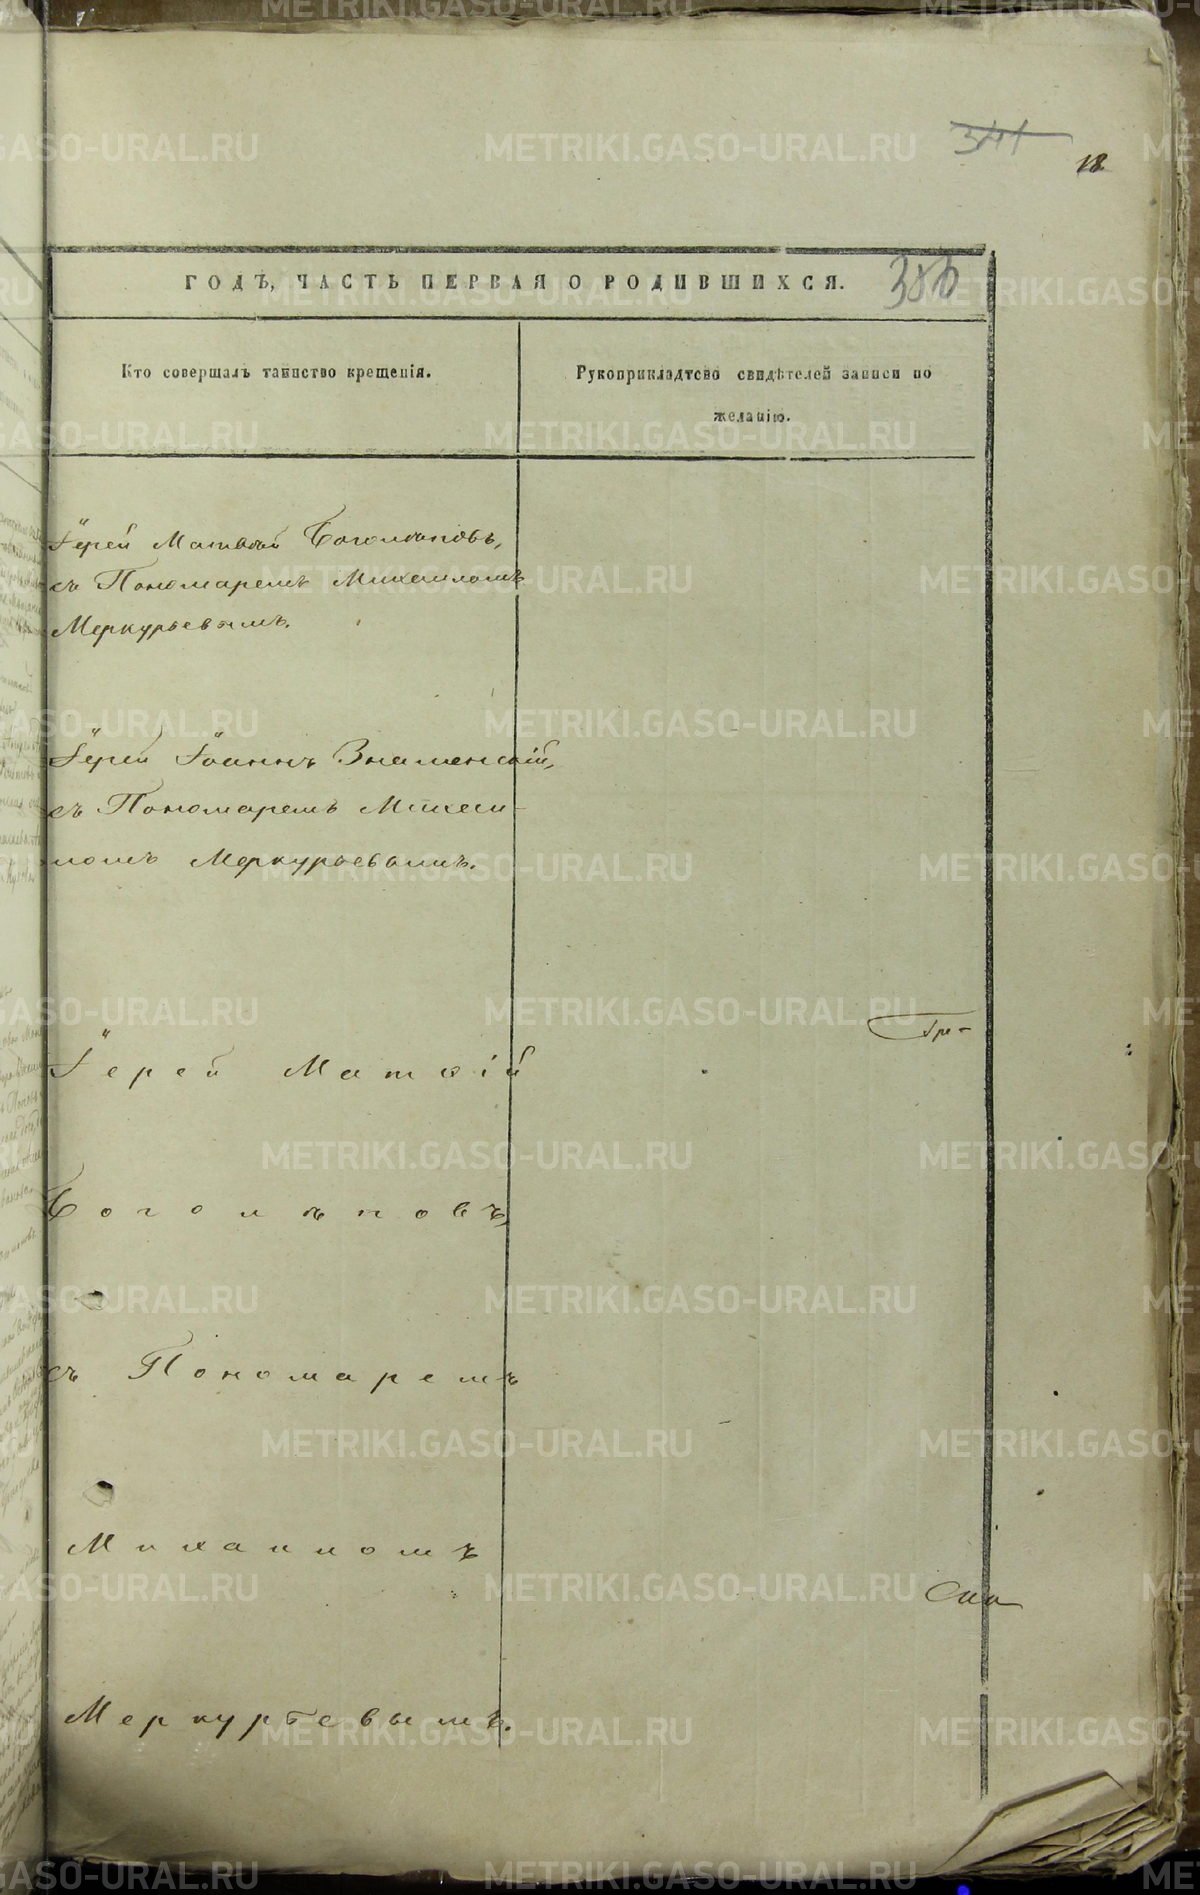 341
18
ГОДЪ, ЧАСТЬ ПЕРВАЯ О РОДИВШИХСЯ.
Кто совершалъ таинство крещенія.
Рукоприкладтсво свидѣтелей записи по
желанію.
Іерей Матвѣй Боголѣповъ,
съ Пономаремъ Михаиломъ
Меркурьевымъ.
Іерей Іоаннъ Знаменскій,
съ Пономаремъ Михаи-
ломъ Меркурьевымъ.
Іерей Матѳій
Боголѣповъ,
съ Пономаремъ
Михаиломъ
Меркурьевымъ.
METRIKI.GASO-URAL.RU